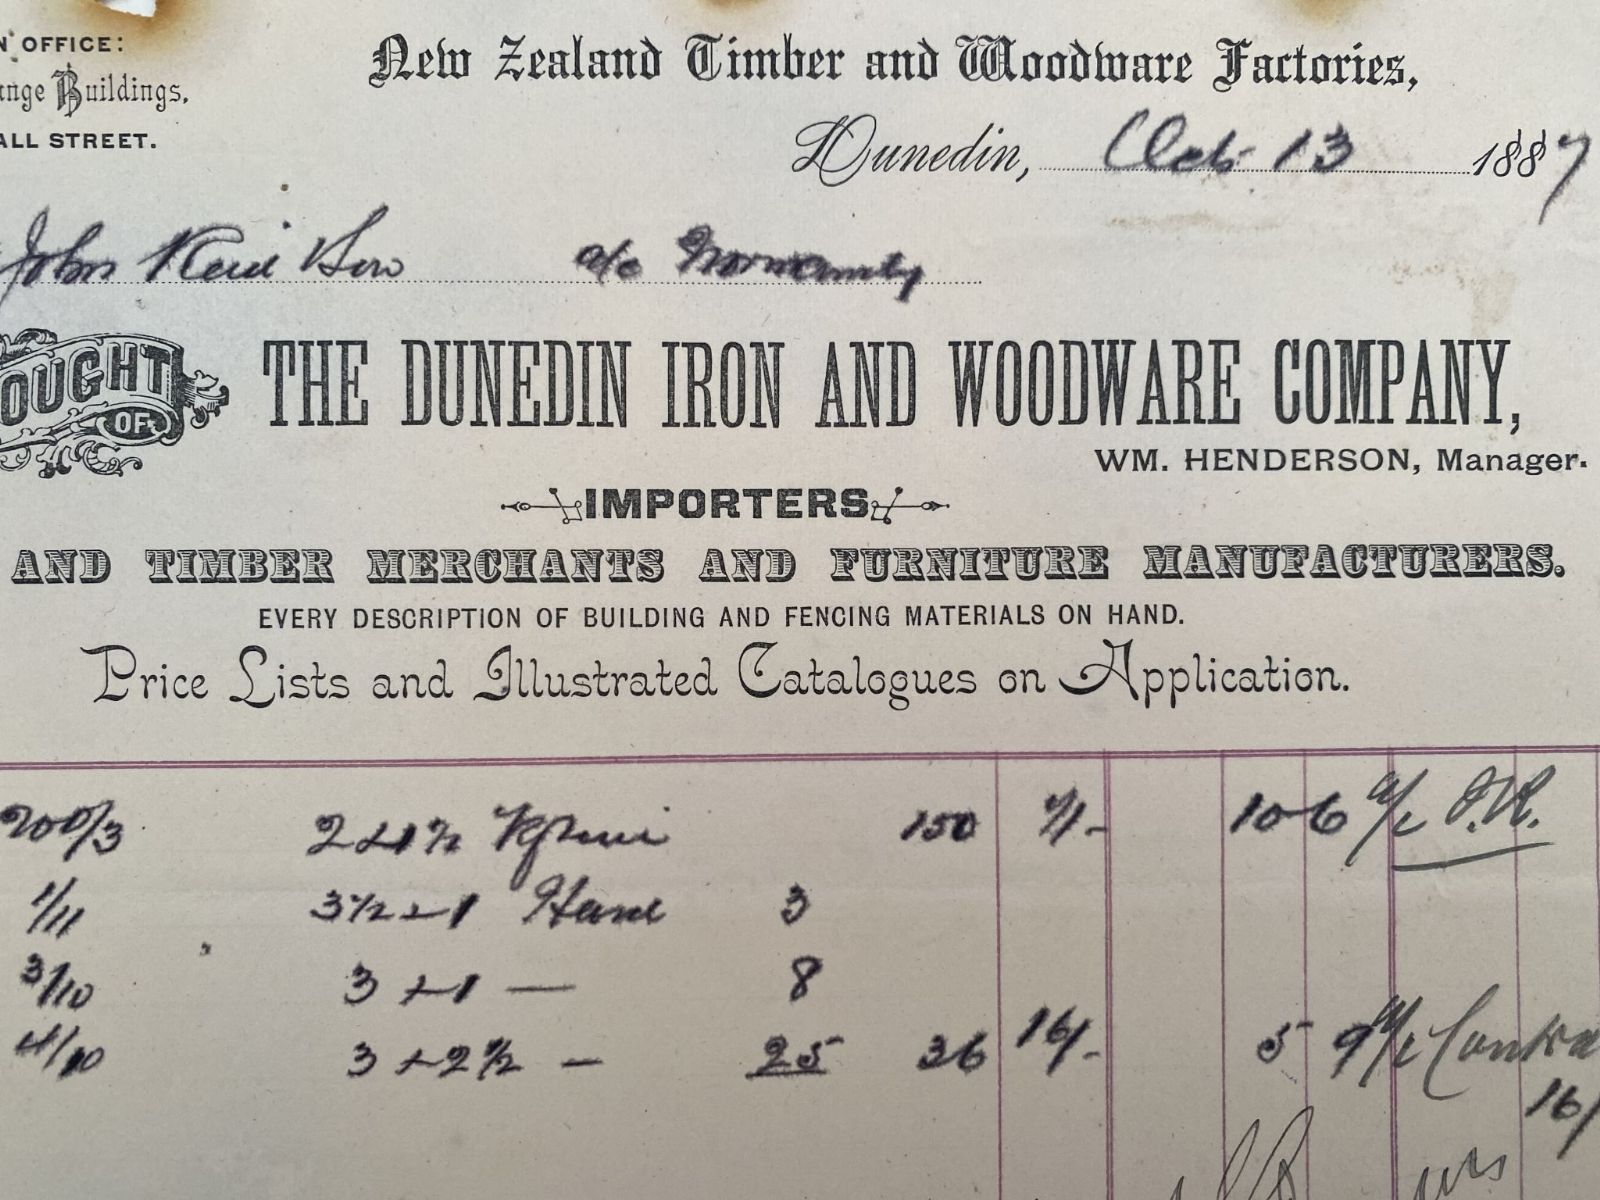 N OFFICE:
nge Buildings,
ALL STREET.
New Zealand Timber and Woodware Factories,
Dunedin, Oct 13 1887
John Reid Son a/c Normanby
OUGHT OF
THE DUNEDIN IRON AND WOODWARE COMPANY,
WM. HENDERSON, Manager.
IMPORTERS
AND TIMBER MERCHANTS AND FURNITURE MANUFACTURERS.
EVERY DESCRIPTION OF BUILDING AND FENCING MATERIALS ON HAND.
Price Lists and Illustrated Catalogues on Application.
200/3 2 x 1½ 150 7/- 10 6 a/c J.R.
1/11 3½ x 1 3
3/10 3 x 1 — 8
4/10 3 x 2½ — 25 36 16/- 5 9 a/c
16/